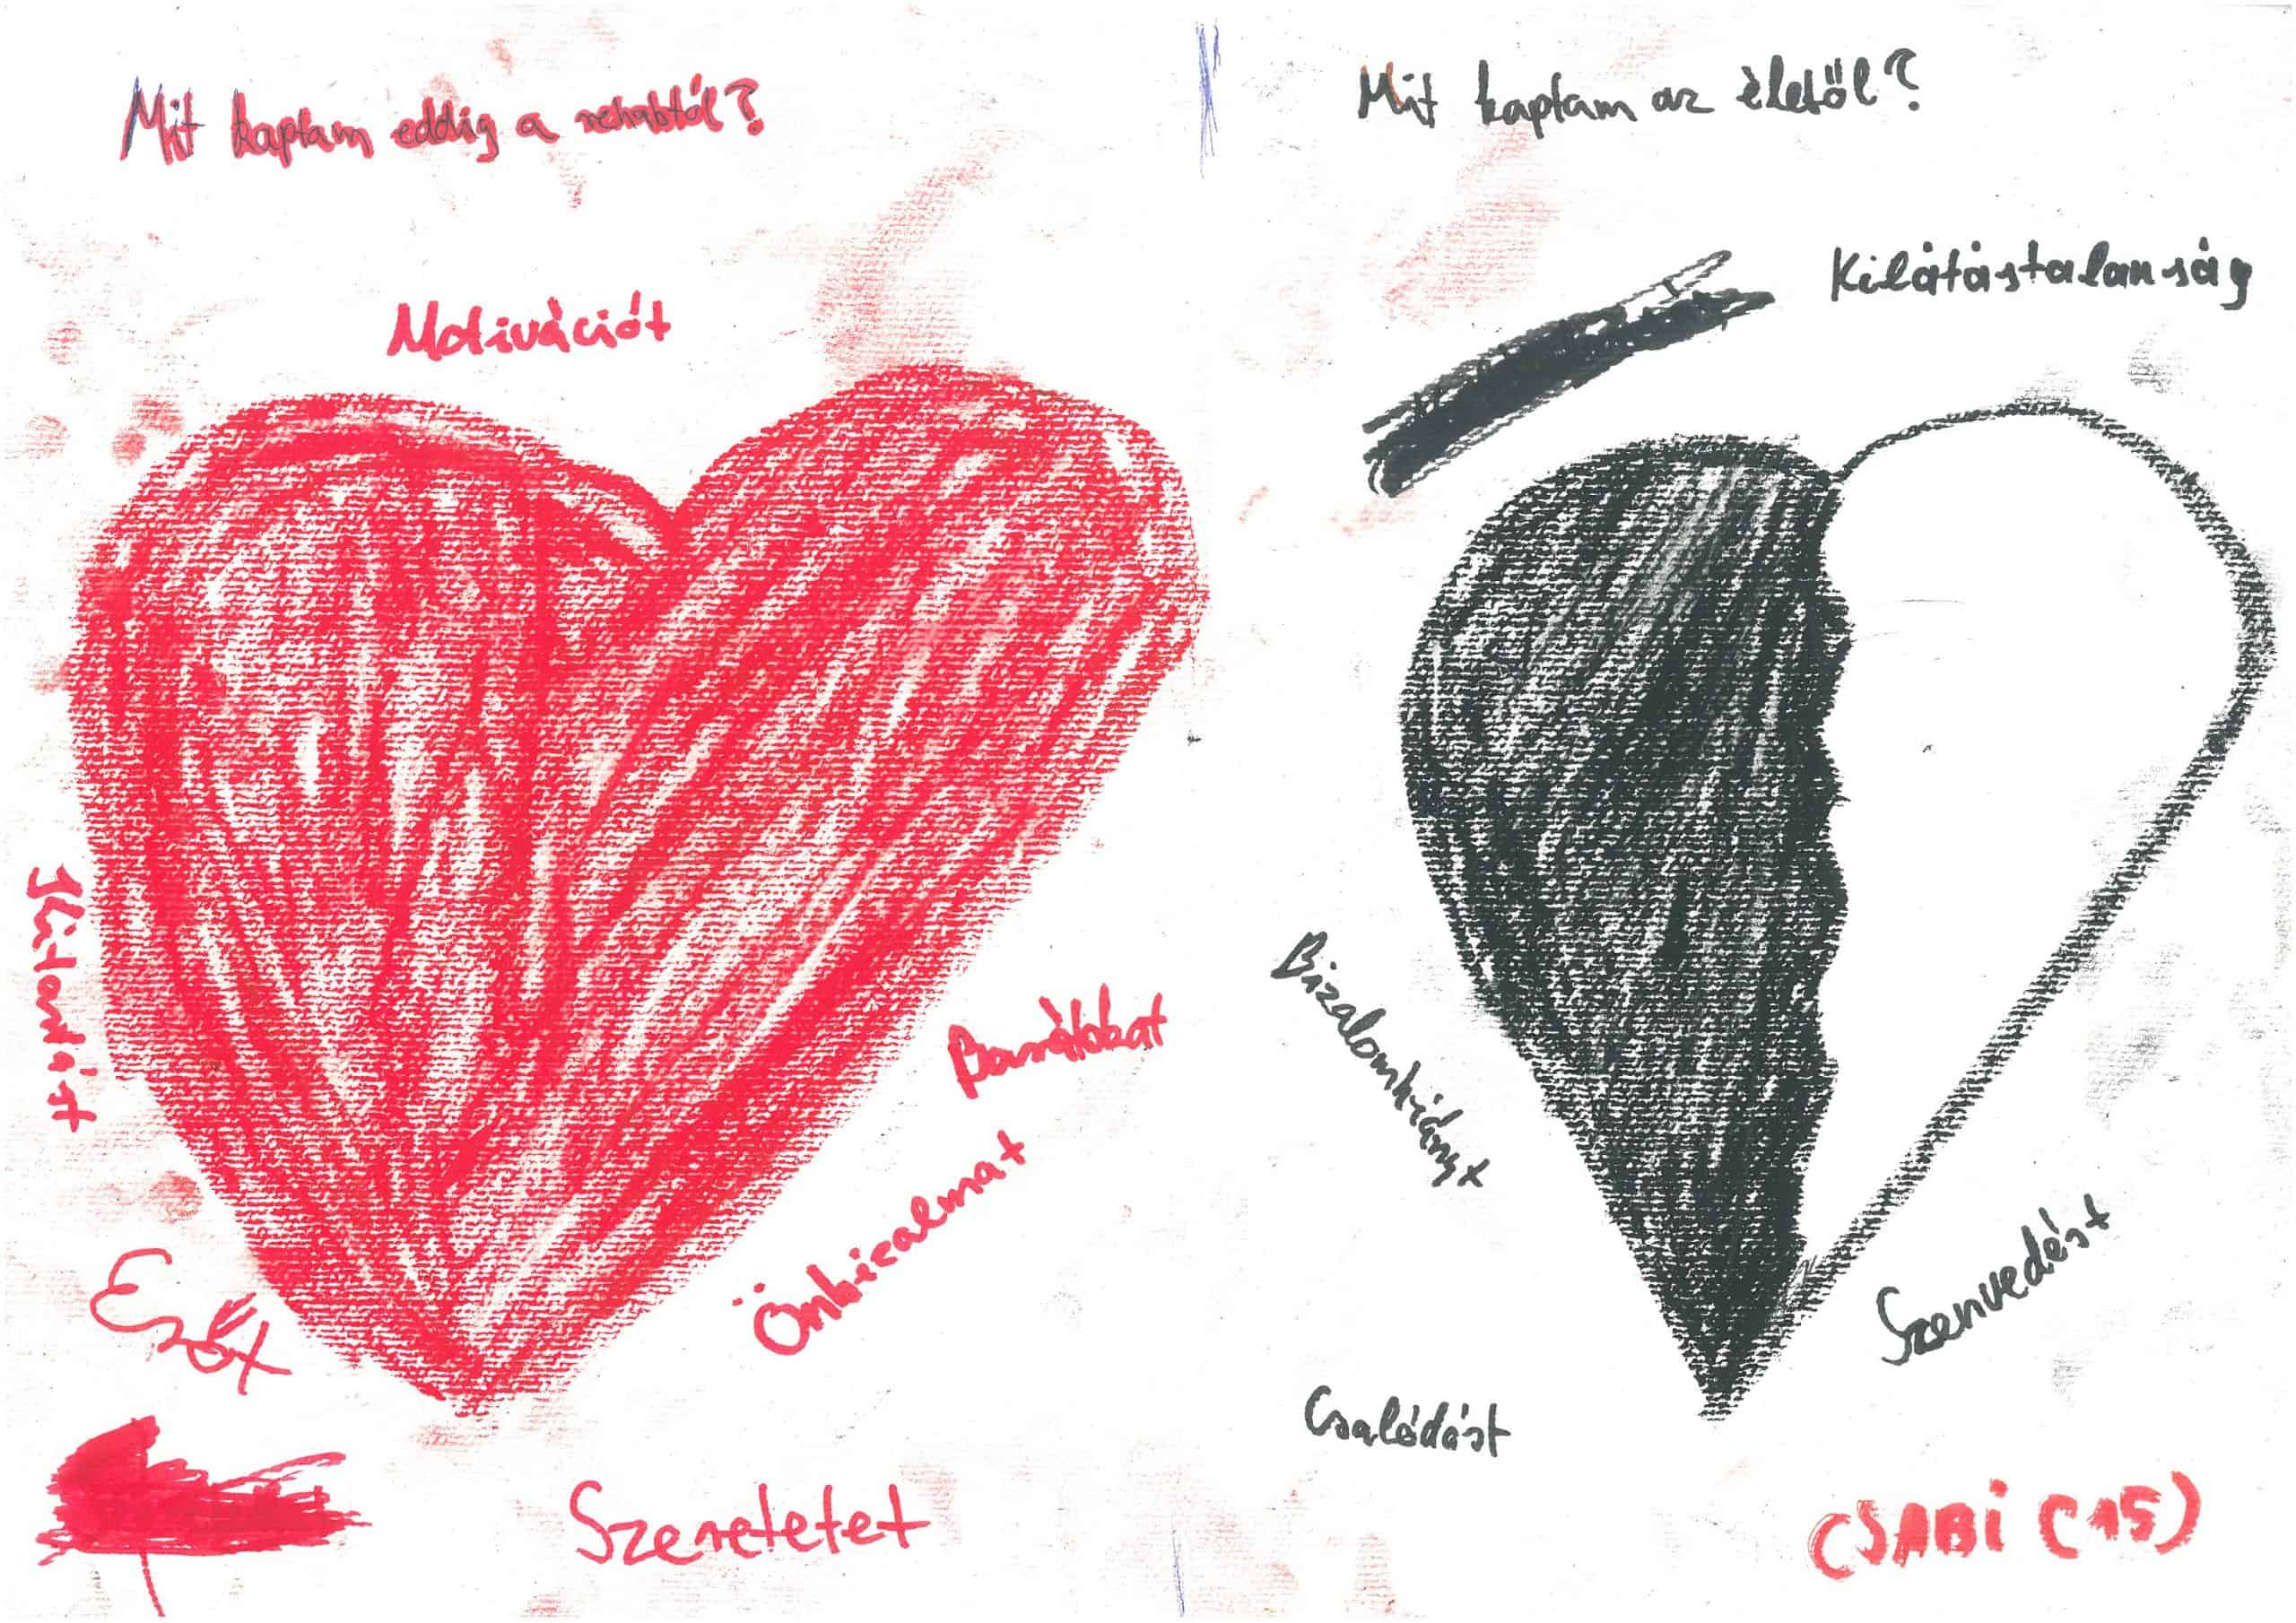 Mit kaptam eddig a rehabtól?
Motivációt
Kitartást
Erőt
Barátokat
Önbizalmat
Szeretetet
Mit kaptam az élettől?
Kilátástalanság
Bizalomhiányt
Szenvedést
Csalódást
CSABI (15)